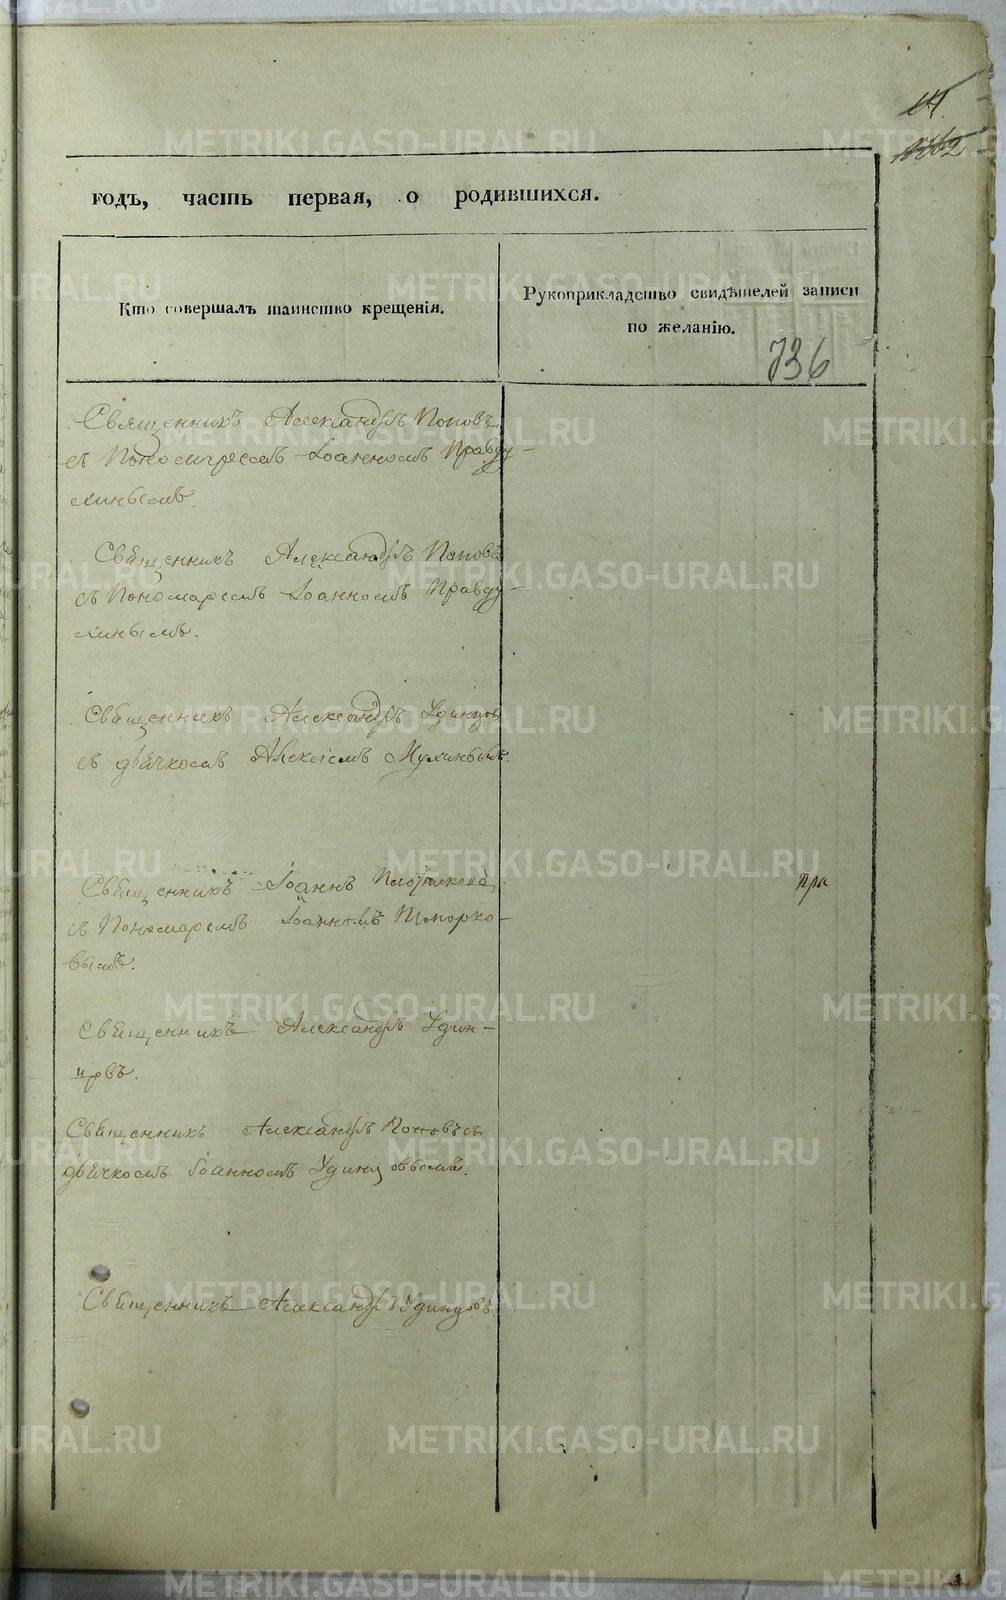 годъ, часть первая, о родившихся.
Кто совершалъ таинство крещенія.
Рукоприкладство свидѣтелей записи
по желанію.
736
Священникъ Александръ Поповъ
съ Пономаремъ Іоанномъ Правду-
хинымъ.
Священникъ Александръ Поповъ
съ Пономаремъ Іоанномъ Правду-
хинымъ.
Священникъ Александръ Удинцов
съ дьячкомъ Алексѣемъ Мухинымъ.
Священникъ Іоаннъ Плотниковъ
съ Пономаремъ Іоанномъ Топорко-
вымъ.
Священникъ Александръ Удин-
цовъ.
Священникъ Александръ Поповъ съ
дьячкомъ Іоанномъ Удинцовымъ.
Священникъ Александръ Удинцовъ.
пра
METRIKI.GASO-URAL.RU